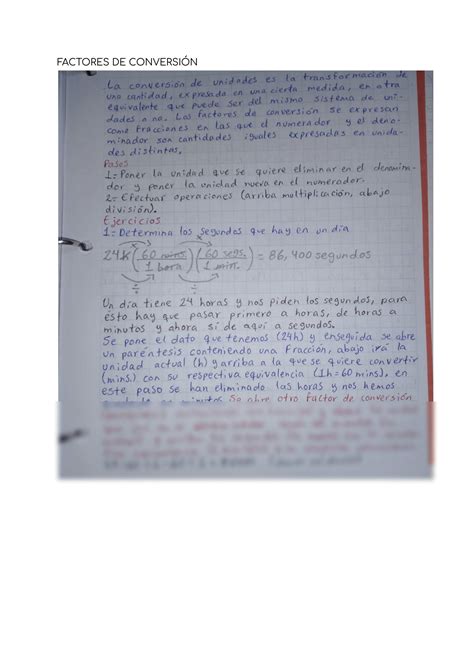 FACTORES DE CONVERSIÓN
La conversión de unidades es la transformación de
una cantidad, expresada en una cierta medida, en otra
equivalente que puede ser del mismo sistema de uni-
dades o no. Los factores de conversión se expresan
como fracciones en las que el numerador y el deno-
minador son cantidades iguales expresadas en unida-
des distintas.
Pasos
1= Poner la unidad que se quiere eliminar en el denomina-
dor y poner la unidad nueva en el numerador.
2= Efectuar operaciones (arriba multiplicación, abajo
división).
Ejercicios
1= Determina los segundos que hay en un día
x x
24h (60 mins / 1 hora) (60 segs. / 1 min.) = 86,400 segundos
÷ ÷
Un día tiene 24 horas y nos piden los segundos, para
ésto hay que pasar primero a horas, de horas a
minutos y ahora sí de aquí a segundos.
Se pone el dato que tenemos (24h) y enseguida se abre
un paréntesis conteniendo una fracción, abajo irá la
unidad actual (h) y arriba a la que se quiere convertir
(mins.) con su respectiva equivalencia (1h=60 mins), en
este paso se han eliminado las horas y nos hemos
Se abre otro factor de conversión